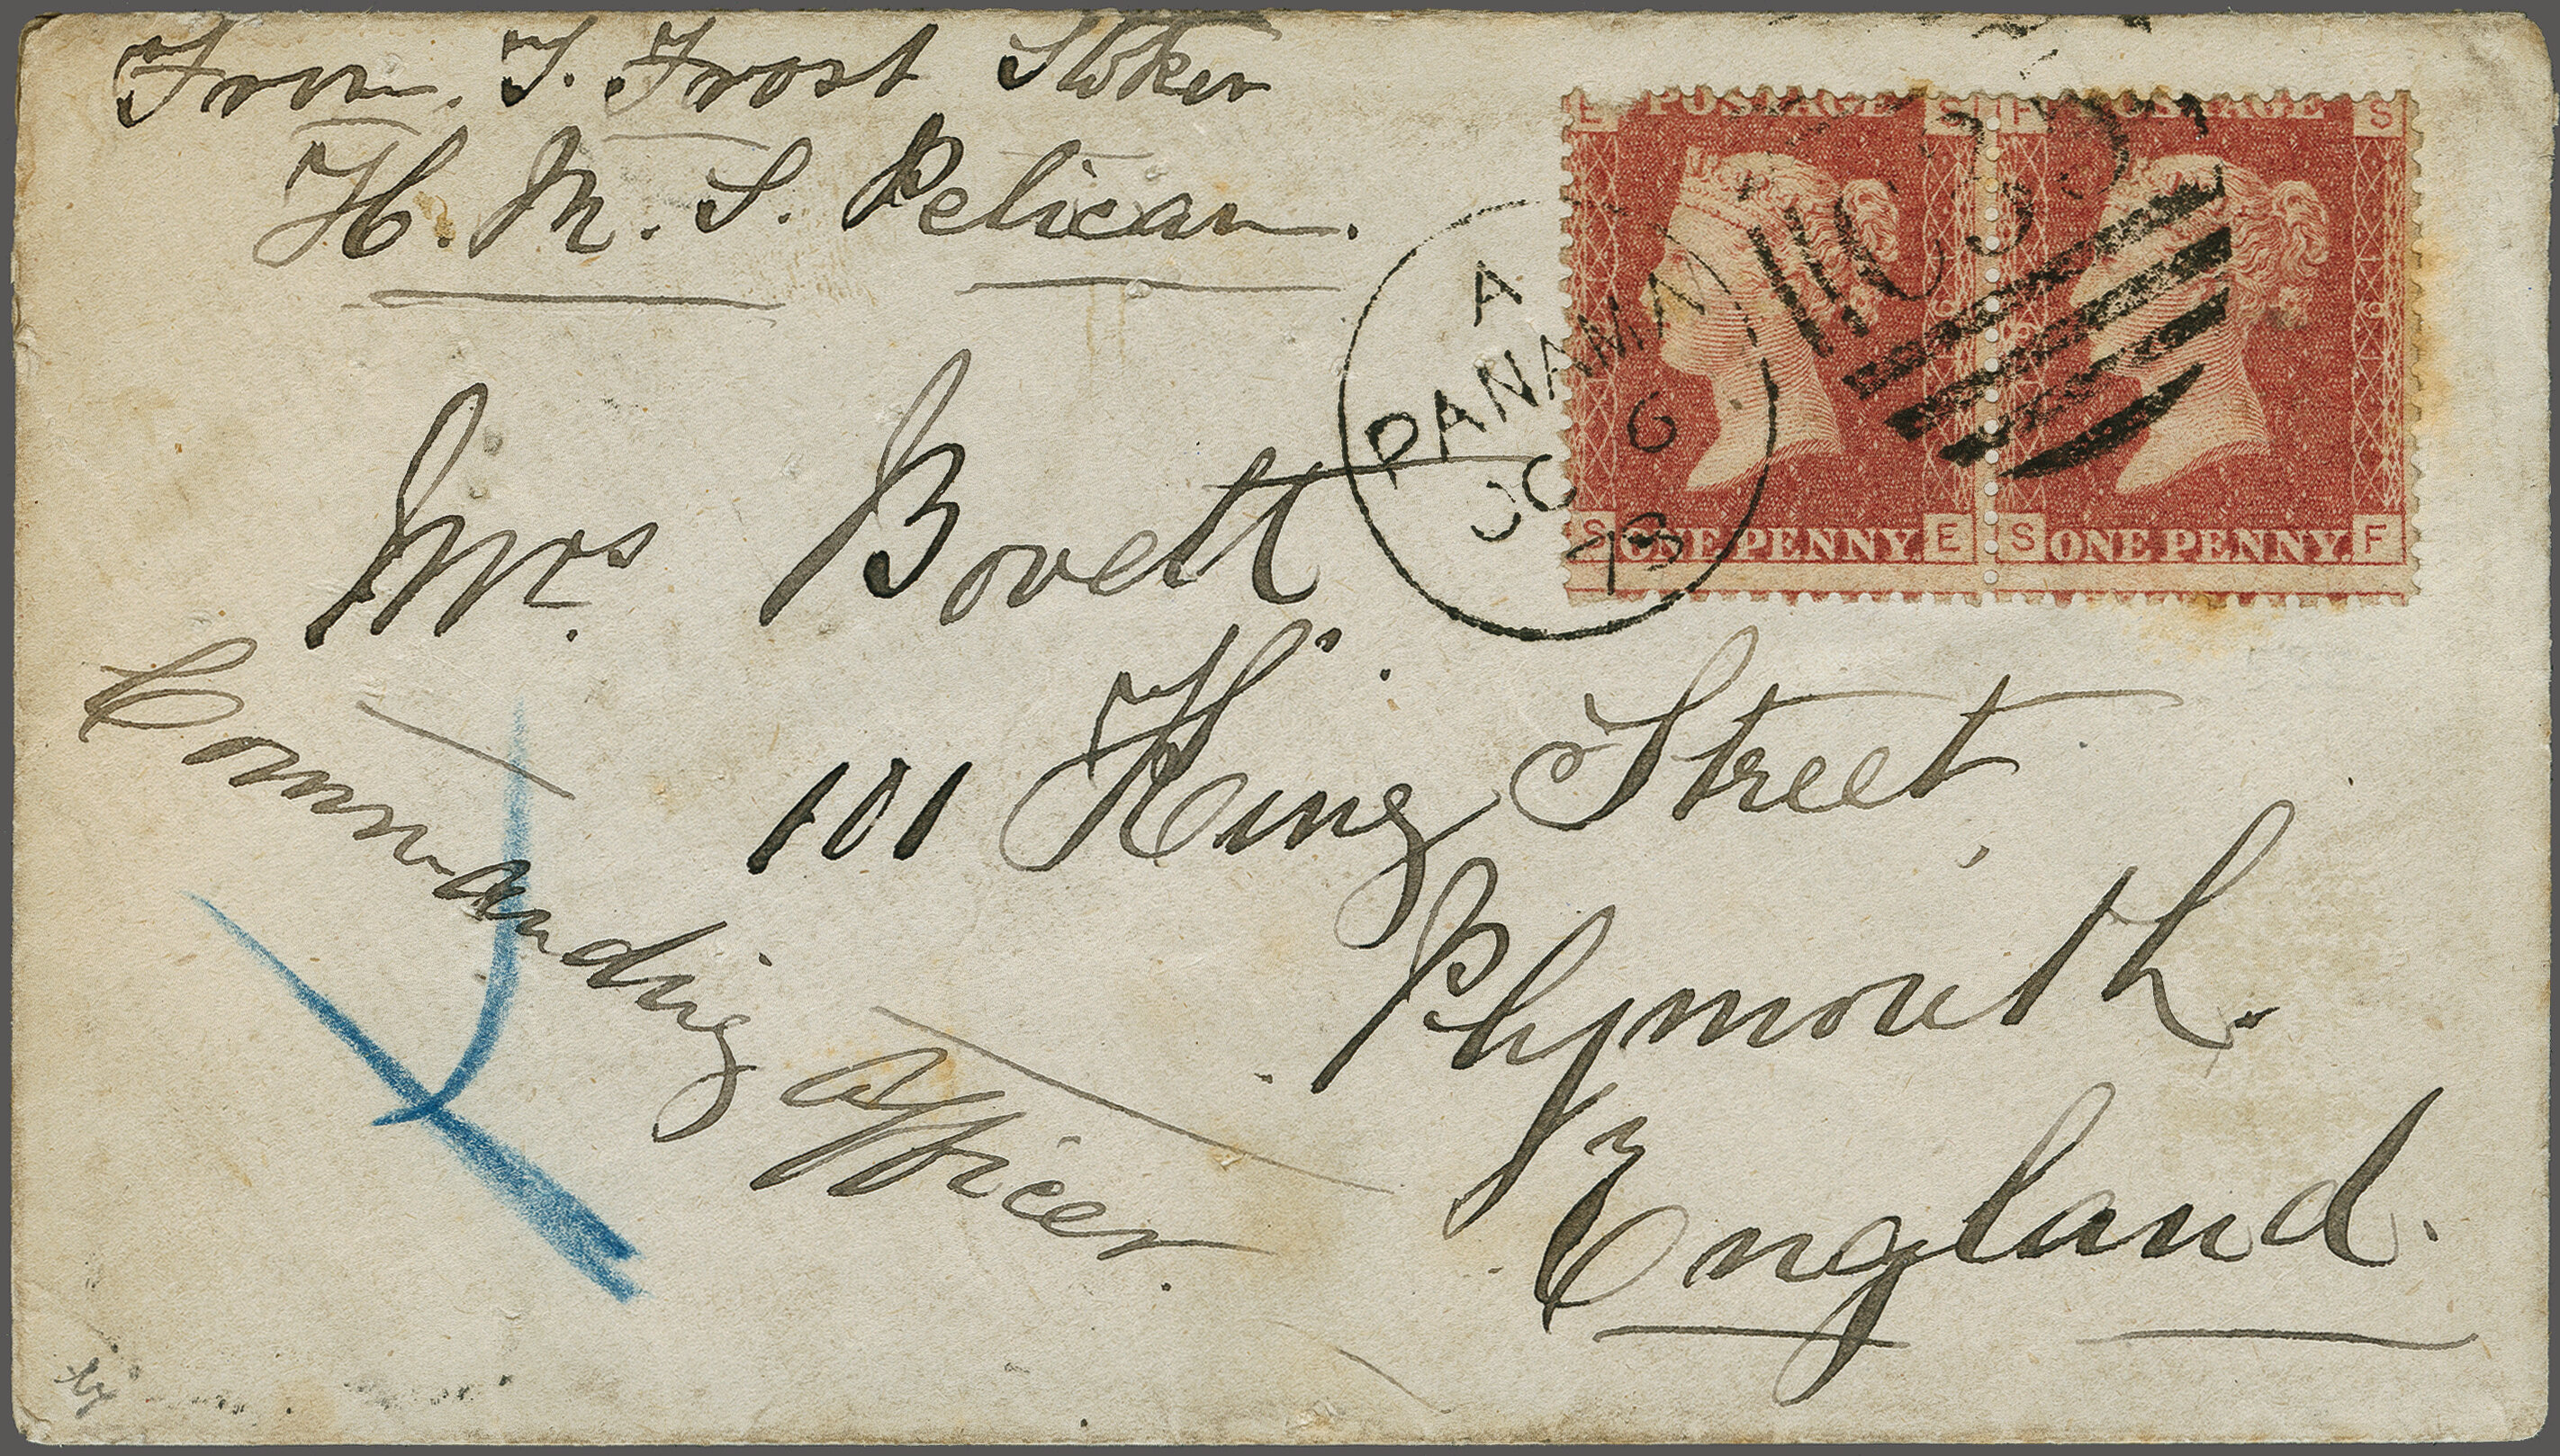 From. T. Frost Stoker
H. M. S. Pelican.
Mrs Bovett
101 King Street
Plymouth.
England.
Commanding
Officer.
A
PANAMA
OC 6
73
C35
E POSTAGE S
S ONE PENNY. E
F POSTAGE S
S ONE PENNY. F